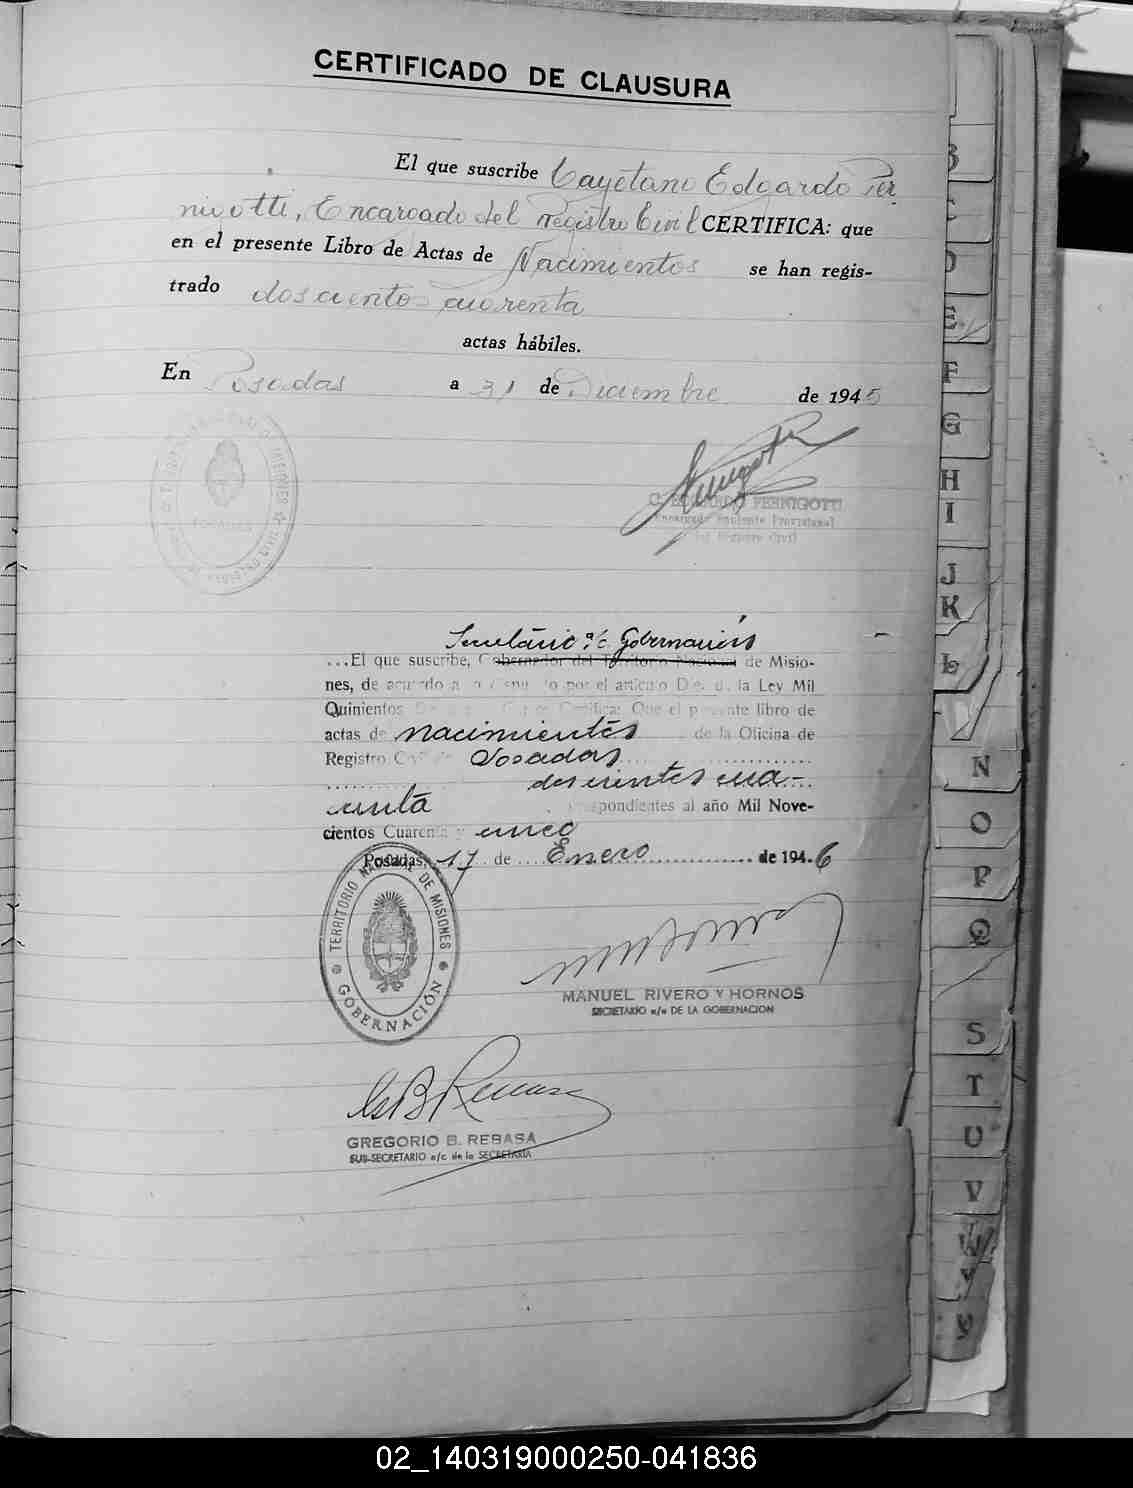 CERTIFICADO DE CLAUSURA
El que suscribe Cayetano Edgardo Per
nigotti, Encargado del Registro Civil CERTIFICA: que
en el presente Libro de Actas de Nacimientos se han regis-
trado doscientos cuarenta
actas hábiles.
En Posadas a 31 de Diciembre de 1945
C. EDGARDO PERNIGOTTI
Encargado Suplente Provisional
del Registro Civil
POSADAS
REGISTRO CIVIL
MISIONES
Secretario a/c Gobernación
...El que suscribe, Gobernador del Territorio Nacional de Misio-
nes, de acuerdo a por el artículo de la Ley Mil
Quinientos Certifica: Que el presente libro de
actas de nacimientos de la Oficina de
Registro Civil de Posadas
doscientos cua-
renta
correspondientes al año Mil Nove-
cientos Cuarenta y cinco
Posadas, 17 de Enero de 1946
TERRITORIO NACIONAL DE MISIONES
GOBERNACIÓN
MANUEL RIVERO Y HORNOS
SECRETARIO a/c DE LA GOBERNACION
GREGORIO B. REBASA
SUB-SECRETARIO a/c de la SECRETARIA
B
C
D
E
F
G
H
I
J
K
L
N
O
P
Q
S
T
U
V
W
Y
02_140319000250-041836